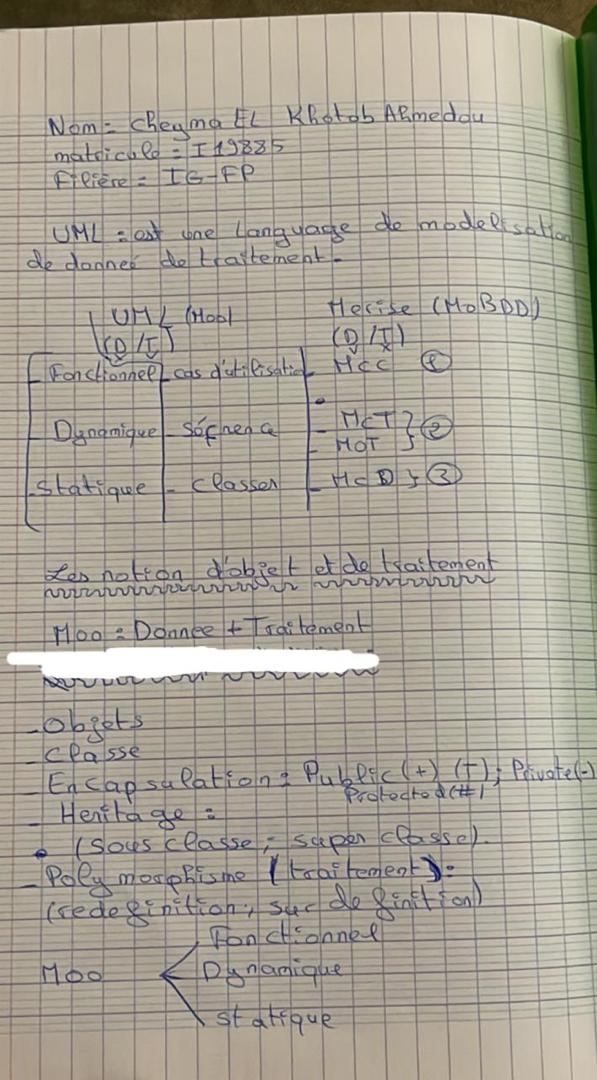 Nom = Cheyma EL Khotob Ahmedou
matricule = I19885
Filière = IG-FP
UML = est une language de modelisation
de donneé de traitement.
UML (Moo) Merise (MoBDD)
(D/T) (D/T)
Fonctionnel - cas d'utilisation - MCC ①
- Dynamique - - MCT } ②
- MOT }
- Statique - Classes - MCD } ③
Les notion d'objet et de traitement
Moo = Donnee + Traitement
- Objets
- Classe
- Encapsulation = Public (+) (T) ; Private (-)
Protected (#)
- Heritage =
• (Sous classe, super classe).
- Polymorphisme (traitement) =
(redefinition, sur definition)
Fonctionnel
Moo Dynamique
statique